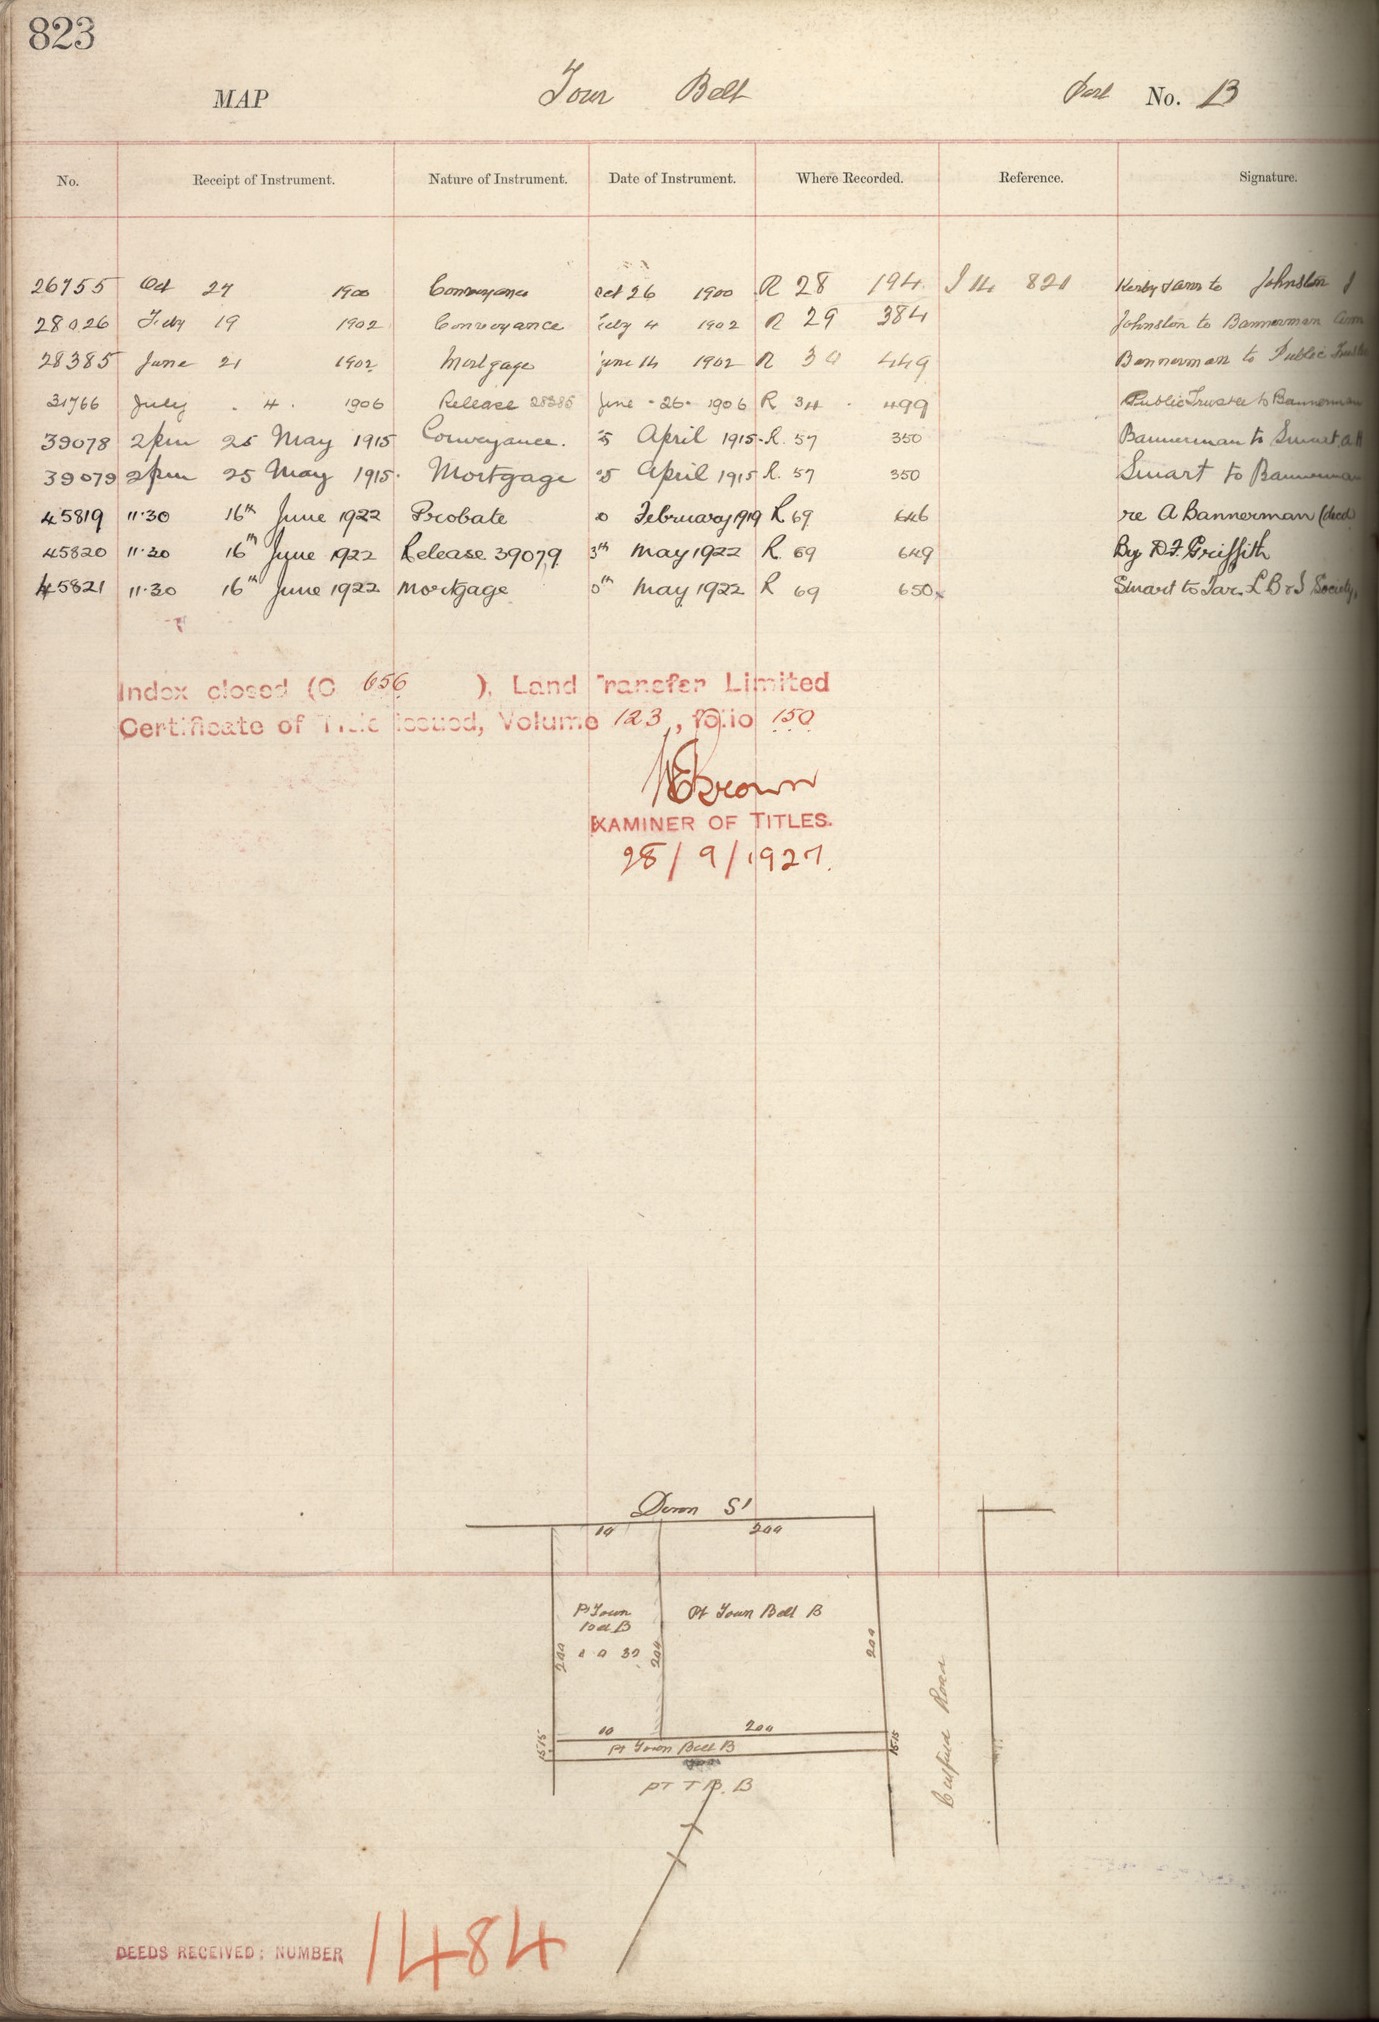 823
MAP Town Belt Part No. B
No. Receipt of Instrument. Nature of Instrument. Date of Instrument. Where Recorded. Reference. Signature.
26755 Oct 27 1900 Conveyance Oct 26 1900 R 28 194 I 14 821 Kerby & anr to Johnston J
28026 Feby 19 1902 Conveyance Feby 4 1902 R 29 384 Johnston to Bannerman
28385 June 21 1902 Mortgage June 14 1902 R 30 449 Bannerman to Public Trustee
31766 July . 4 . 1906 Release 28385 June - 26 - 1906 R 34 . 499 Public Trustee to Bannerman
39078 2pm 25 May 1915 Conveyance. April 1915. R. 57 350 Bannerman to Smart A H
39079 2pm 25 May 1915. Mortgage April 1915 R. 57 350 Smart to Bannerman
45819 11.30 16th June 1922 Probate February 1919 R 69 646 re A Bannerman (decd)
45820 11.30 16th June 1922 Release 39079. May 1922 R. 69 649 By D.F. Griffith
45821 11.30 16th June 1922 Mortgage May 1922 R 69 650 Smart to Tar. L B & I Society.
Index closed (C 656 ), Land Transfer Limited
Certificate of Title issued, Volume 123, folio 150
Brown
EXAMINER OF TITLES.
28/9/1927.
Devon St
10 200
Pt Town Belt B
Pt Town Belt B
0 0 32
200 200 200
10 200
1515 Pt Town Belt B 1515
PT T B. B
Road
DEEDS RECEIVED: NUMBER 1484